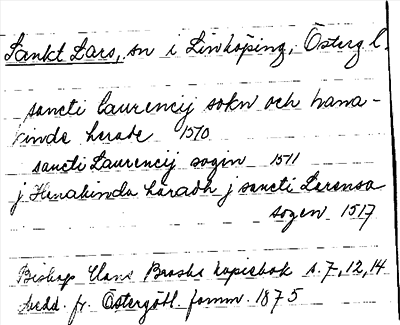 Sankt Lars, sn i Linköping, Österg l.
sancti laurencij sokn och hana-
kinda herade 1510
sancti Laurencij sogin 1511
j Hanakinda haradh j sancti Larensa
sogen 1517
Biskop Hans Brasks kopiebok s. 7, 12, 14
Medd. fr. Östergötl. fornm. 1875